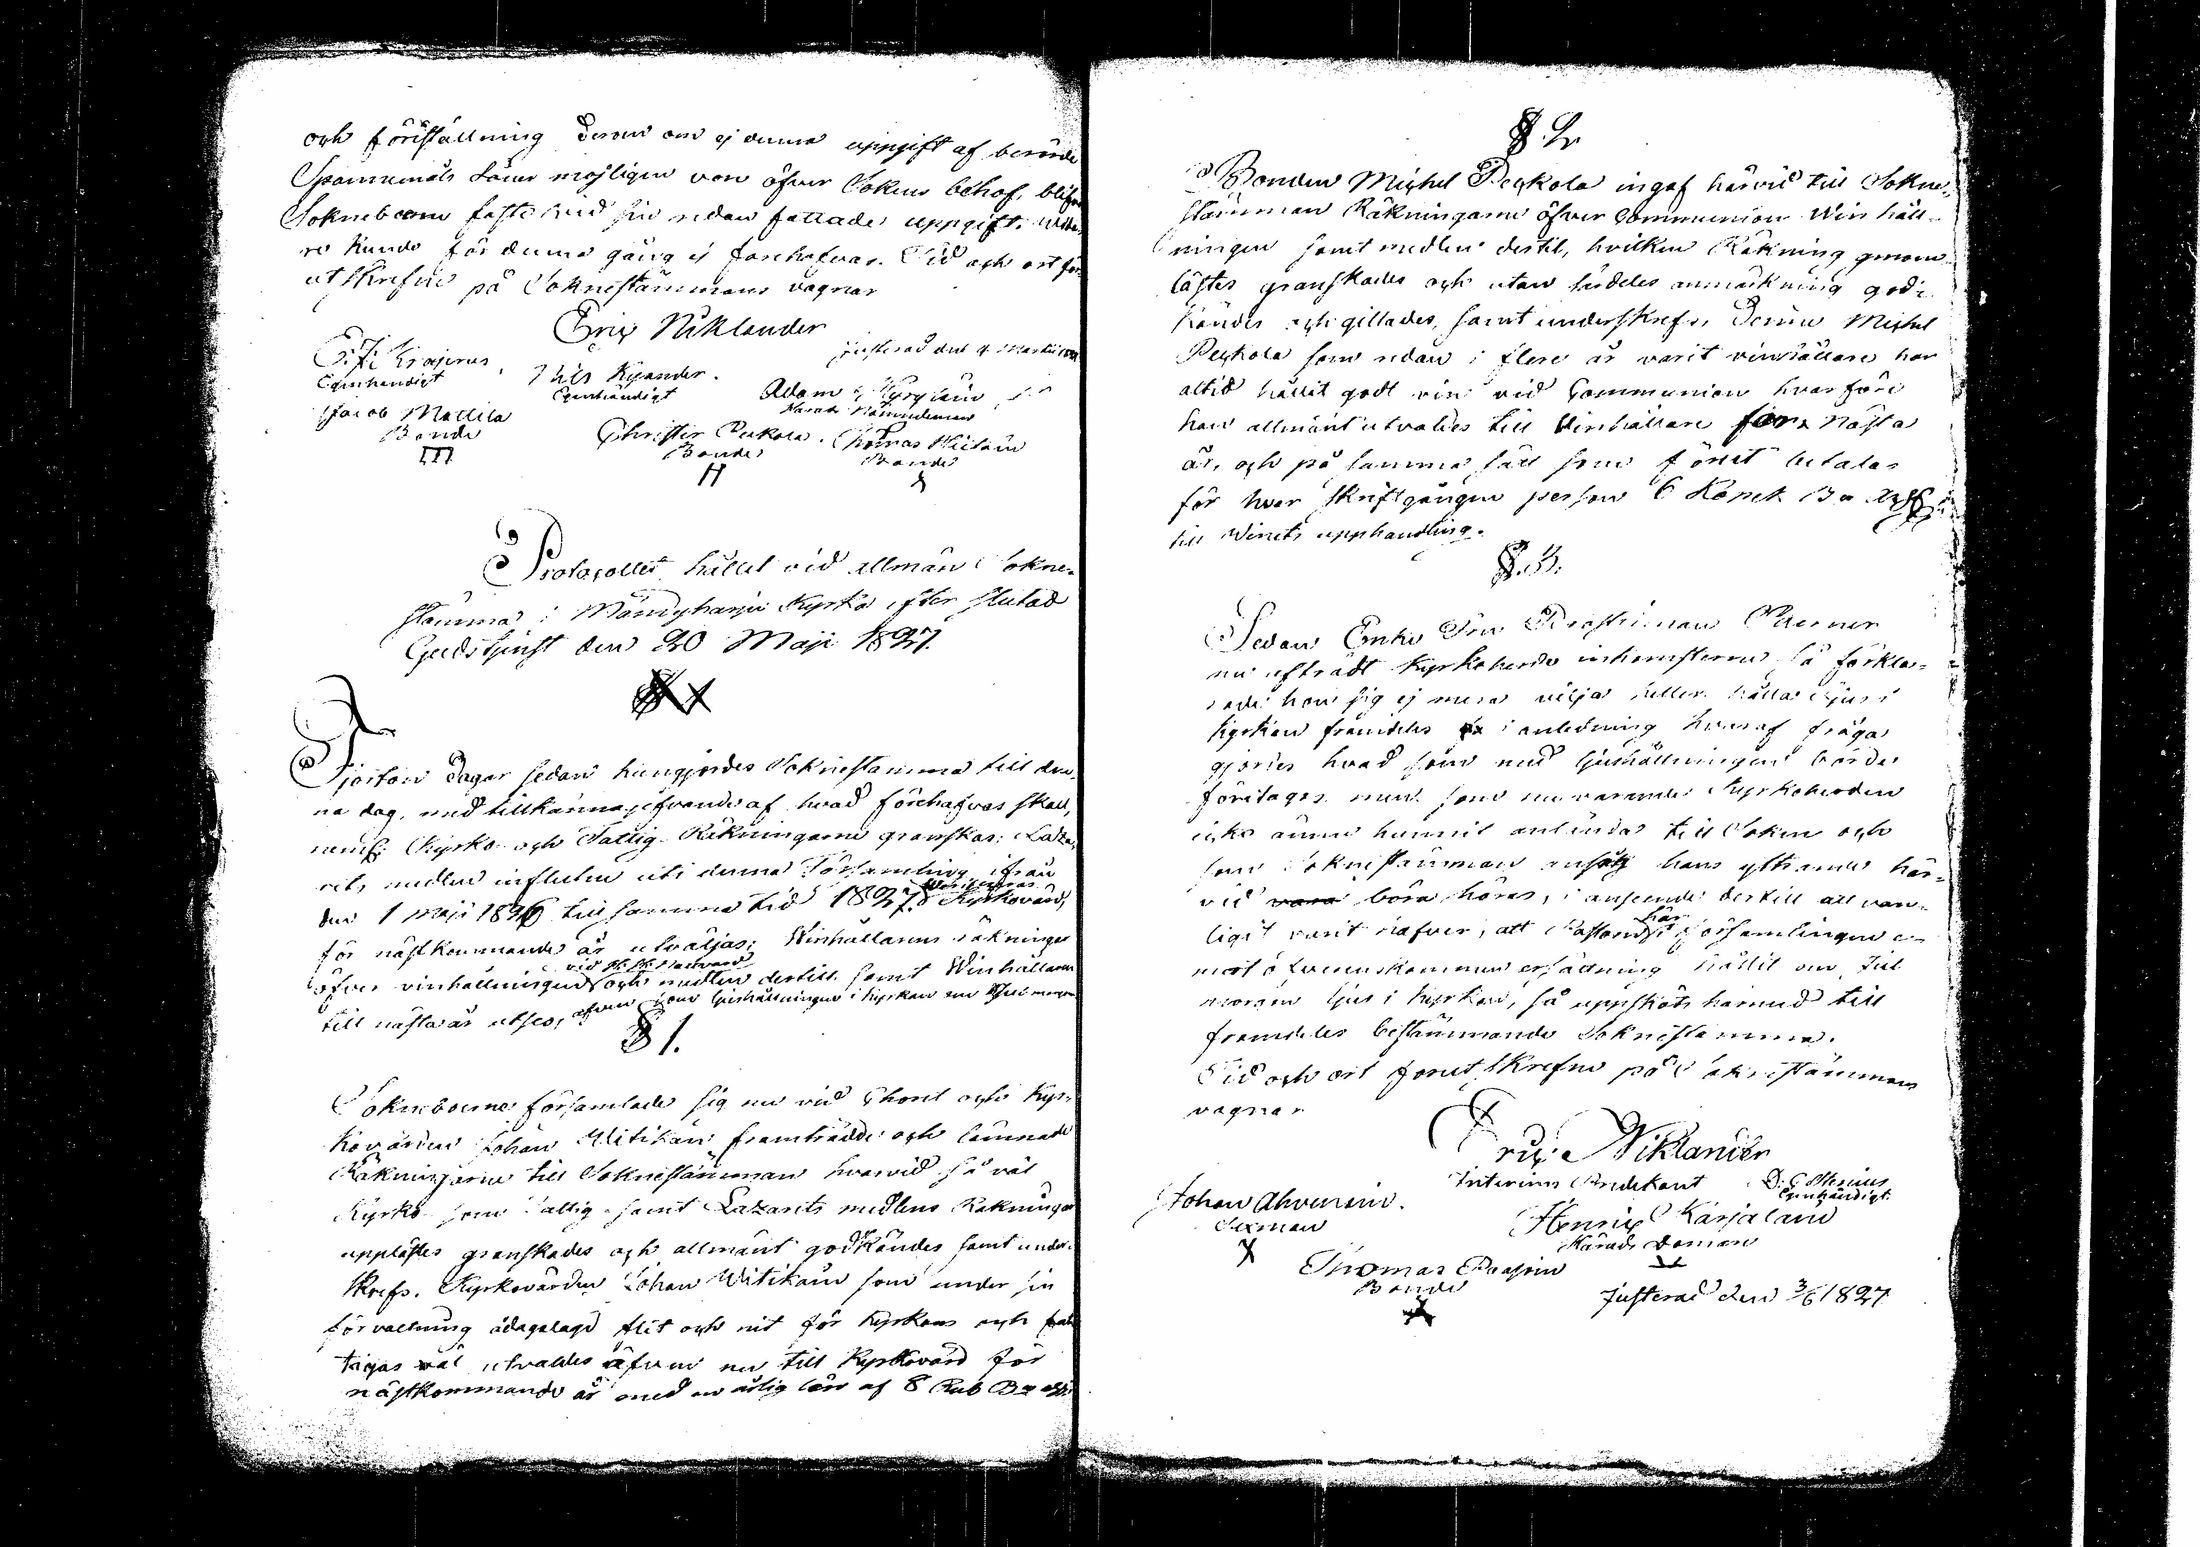 och föreställning derom om ej denna uppgift af berörde
Spannemåls Låner möjligen vore öfver Sokens behof, blifva
Sokneboerne faste vid sin redan fattade uppgift.
re kunde för denna gång ej förehafvas. Tid och ort för
utskrefne på Soknestämmans vägnar
Eric Niklander
justerad den 4 Martii
Egenhändigt
Nils Kyander.
Egenhändigt
Adam
Härads Nämndeman
Jacob Mattila
Bonde
Christer Peckola.
Bonde
Thomas
Bonde
Protocollet hållit vid allmän Sokne-
stämma i Mändyharju Kyrka efter slutad
Gudstjenst den 20 Maji 1827.
Fjorton dagar sedan kungjordes Soknestämma till den-
na dag, med tillkännagifvande af hvad förehafvas skall,
neml: Kyrko och Fattig-Räkningarne granskas; Laza-
rets medlen influtne uti denna Församling ifrån
den 1 Maji 1826 till samma tid 1827. Kyrkovärd,
för nästkommande år utväljas; Winhållarens räkninger
öfver vinhållningen och medlen dertill samt Winhållare
till nästa år utses, äfven som ljushållningen i kyrkan om Julmorgon
§ 1.
Sokneboerne församlade sig nu vid Choret och Kyr-
kovärden Johan Witikain framträdde och lämnade
Räkningarne till Soknestämman hvarvid så väl
Kyrko- som Fattig- samt Lazarets medlens Räkningar
upplästes granskades och allmänt godkändes samt under-
skrefs. Kyrkovärden Johan Witikain som under sin
förvaltning ådagalagd flit och nit för kyrkans och fat
tigas väl utvaldes äfven nu till Kyrkovärd för
nästkommande år med en årlig lön af 8 Rub Bco
§. 2.
Bonden Michel Peckola ingaf härvid till Sokne-
stämman Räkningarne öfver Communion Winhåll-
ningen samt medlen dertil, hvilken Räkning genom-
lästes granskades och utan särdeles anmärkning god-
kändes och gillades, samt underskrefs. Denne Michel
Peckola som redan i flere år varit vinhållare har
altid hållit godt vin vid Communion hvarföre
han allmänt utvaldes till Vinhållare för nästa
år, och på samma sätt som förut betalas
för hvar skriftgången person 6 Kopek Bco
till Winets upphandling.
§. 3.
Sedan Enke Fru Prostinnan
nu afträdt Kyrkoherde inkomsterne så förkla-
rade hon sig ej mera vilja heller hålla ljus i
kyrkan framdeles i anledning hvaraf fråga
gjordes hvad som med ljushållningen borde
företagas men som nu varande Kyrkoherden
icke ännu hunnit anlända till Soken och
som Soknestämman ansåg hans yttrande här-
vid vara böra höras, i anseende dertill att van-
ligit varit häfver, att Pastor här i församlingen e-
mot öfverenskommen ersättning hållit om Jul
morgon ljus i kyrkan, så uppsköts härmed till
framdeles bestämmande Soknestämma.
Tid och ort förut skrefne på Soknestämmans
vägnar
Eric Niklander
Interims Predikant
Egenhändigt.
Johan Ahvenain.
Sexman
Henric Karjalain
Härads Domare
Thomas
Bonde
Justerad den 3/6 1827